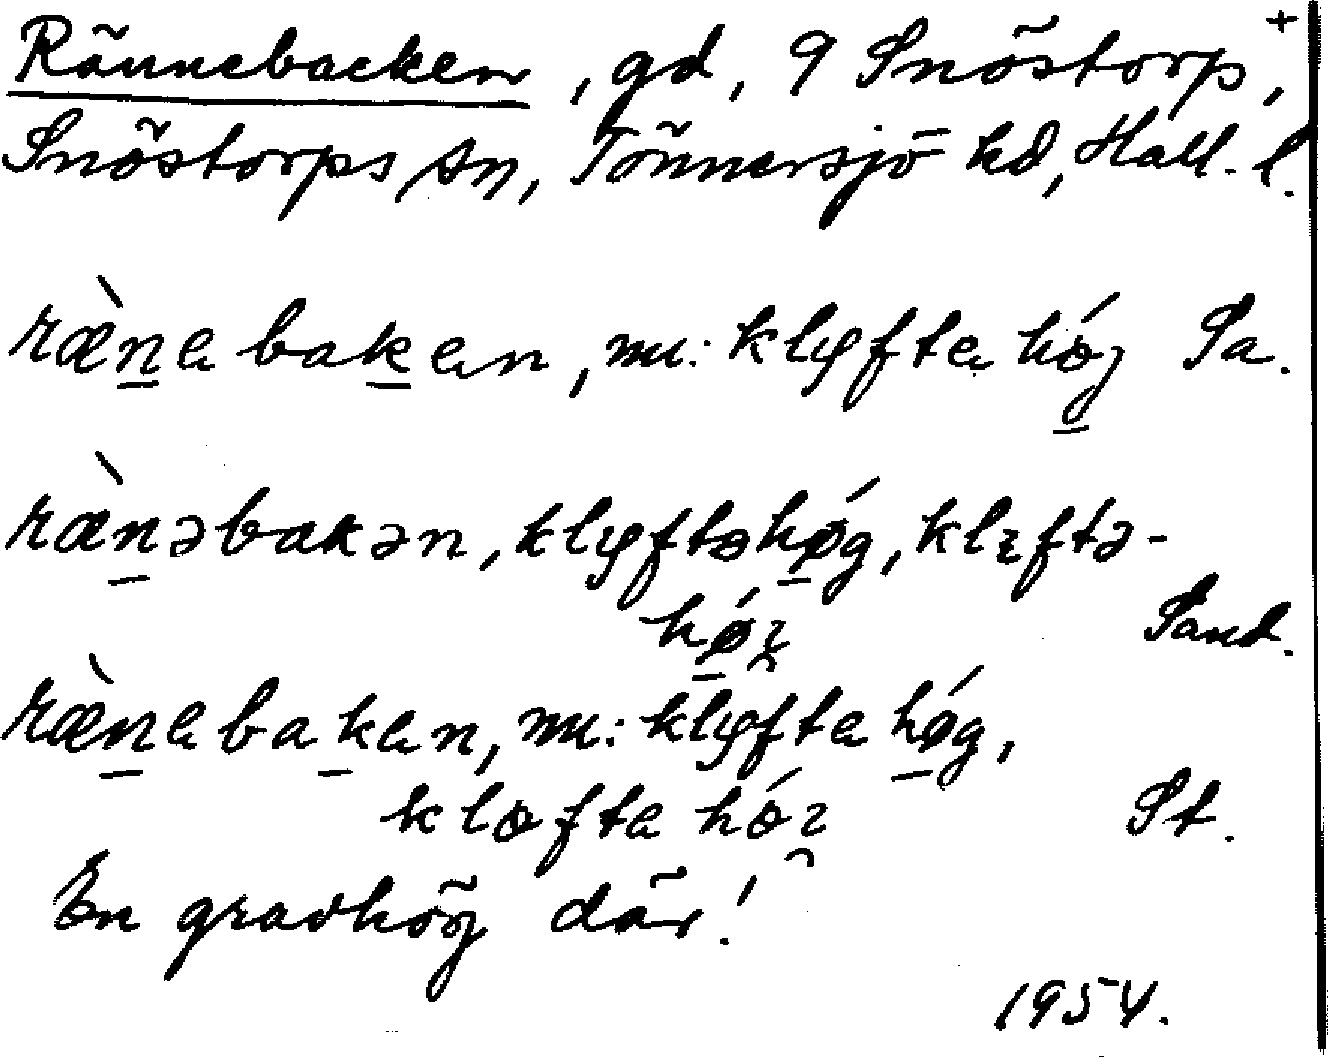 Rännebacken, gd, 9 Snöstorp, +
Snöstorps sn, Tönnersjö hd, Hall. l.
ræ̀n̲e bak̲en, nu: klyfte hǿ̲g Sa.
ræ̀n̲əbakən, klyftəhǿ̲g, klæftə-
hǿ̲ʒ Sand.
ræ̀n̲e bak̲en, nu: klyfte hǿ̲g,
kløfte hǿʒ St.
En gravhög där!
1954.